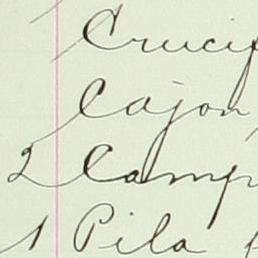 Crucif
Cajon
2 Camp
1 Pila